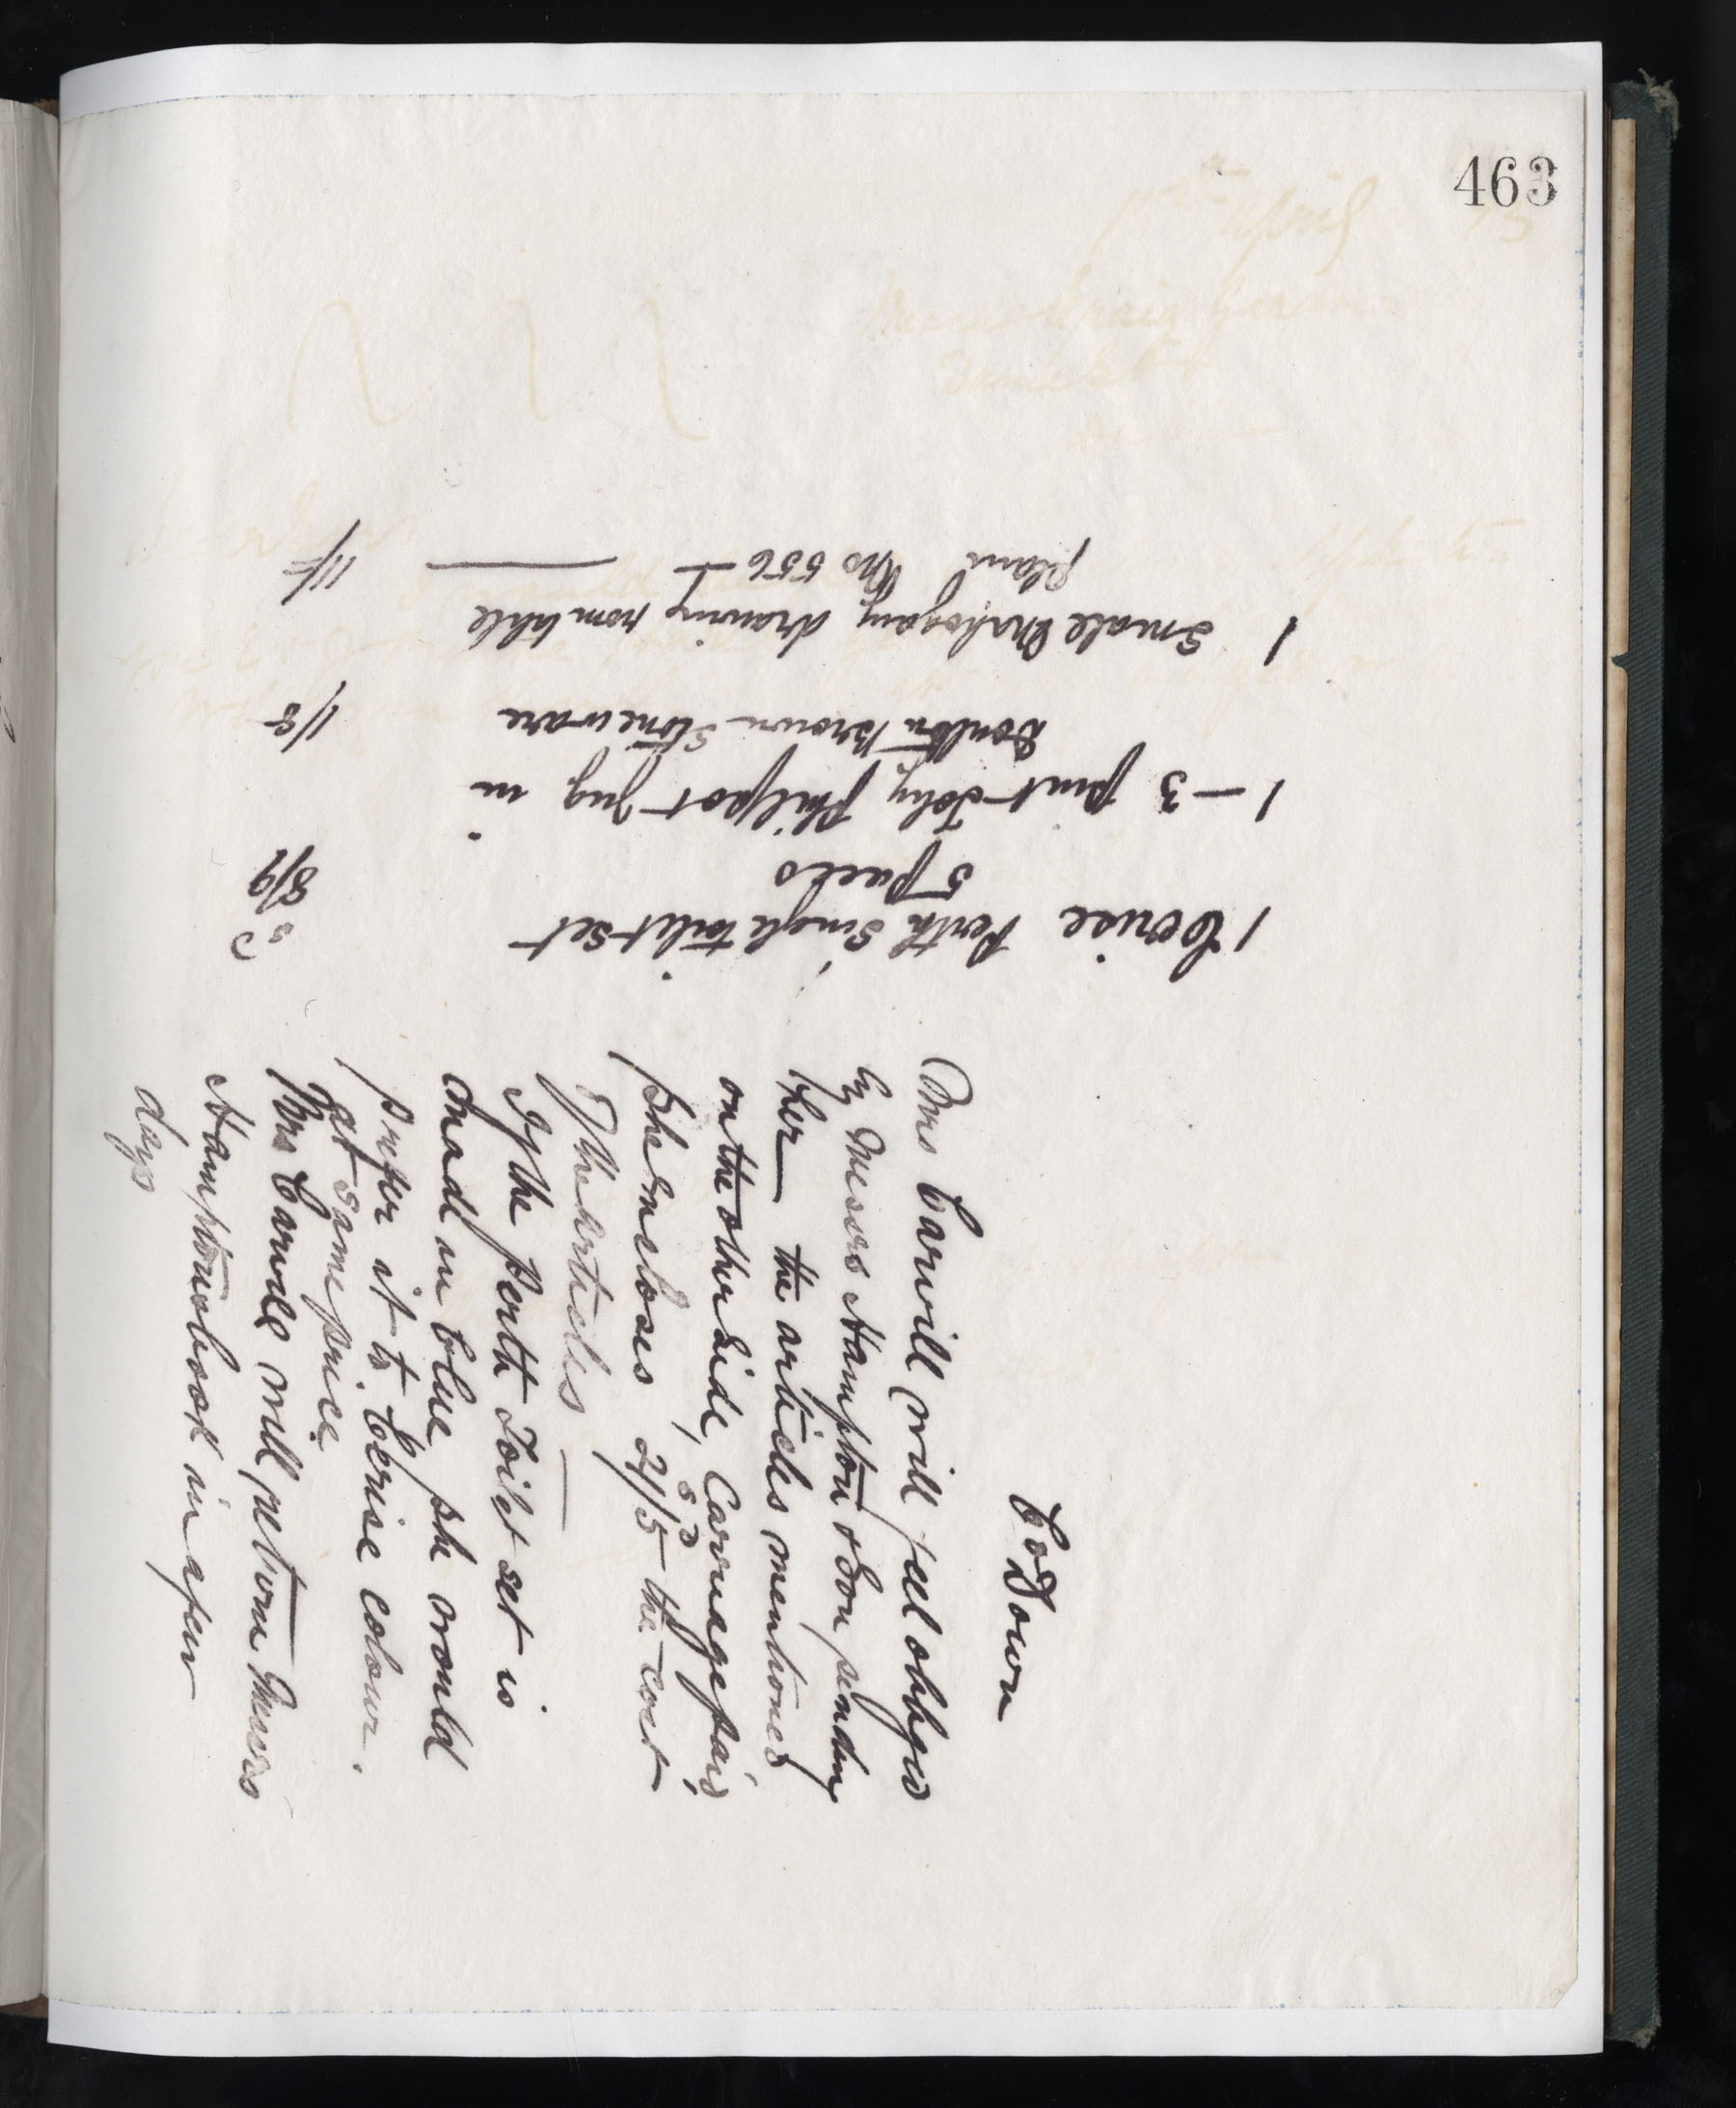 463
Co Down
Mrs Carvill will feel obliged
by Messrs Hampton & Son sending
her the articles mentioned
on the other side, Carriage paid,
she encloses 21/5 the cost
of the articles
If the Perth Toilet set is
made in blue she would
prefer it to Cerise colour.
at same price
Mrs Carvill will return Messrs
Hamptons book in a few
days
s d
1 Cerise Perth Single toilet set
5 pieces 8/9
1 — 3 pint Toby Philpot Jug in
Doulton Brown Stoneware 1/8
1 Small Mahogany drawing room table
No 556 11/-